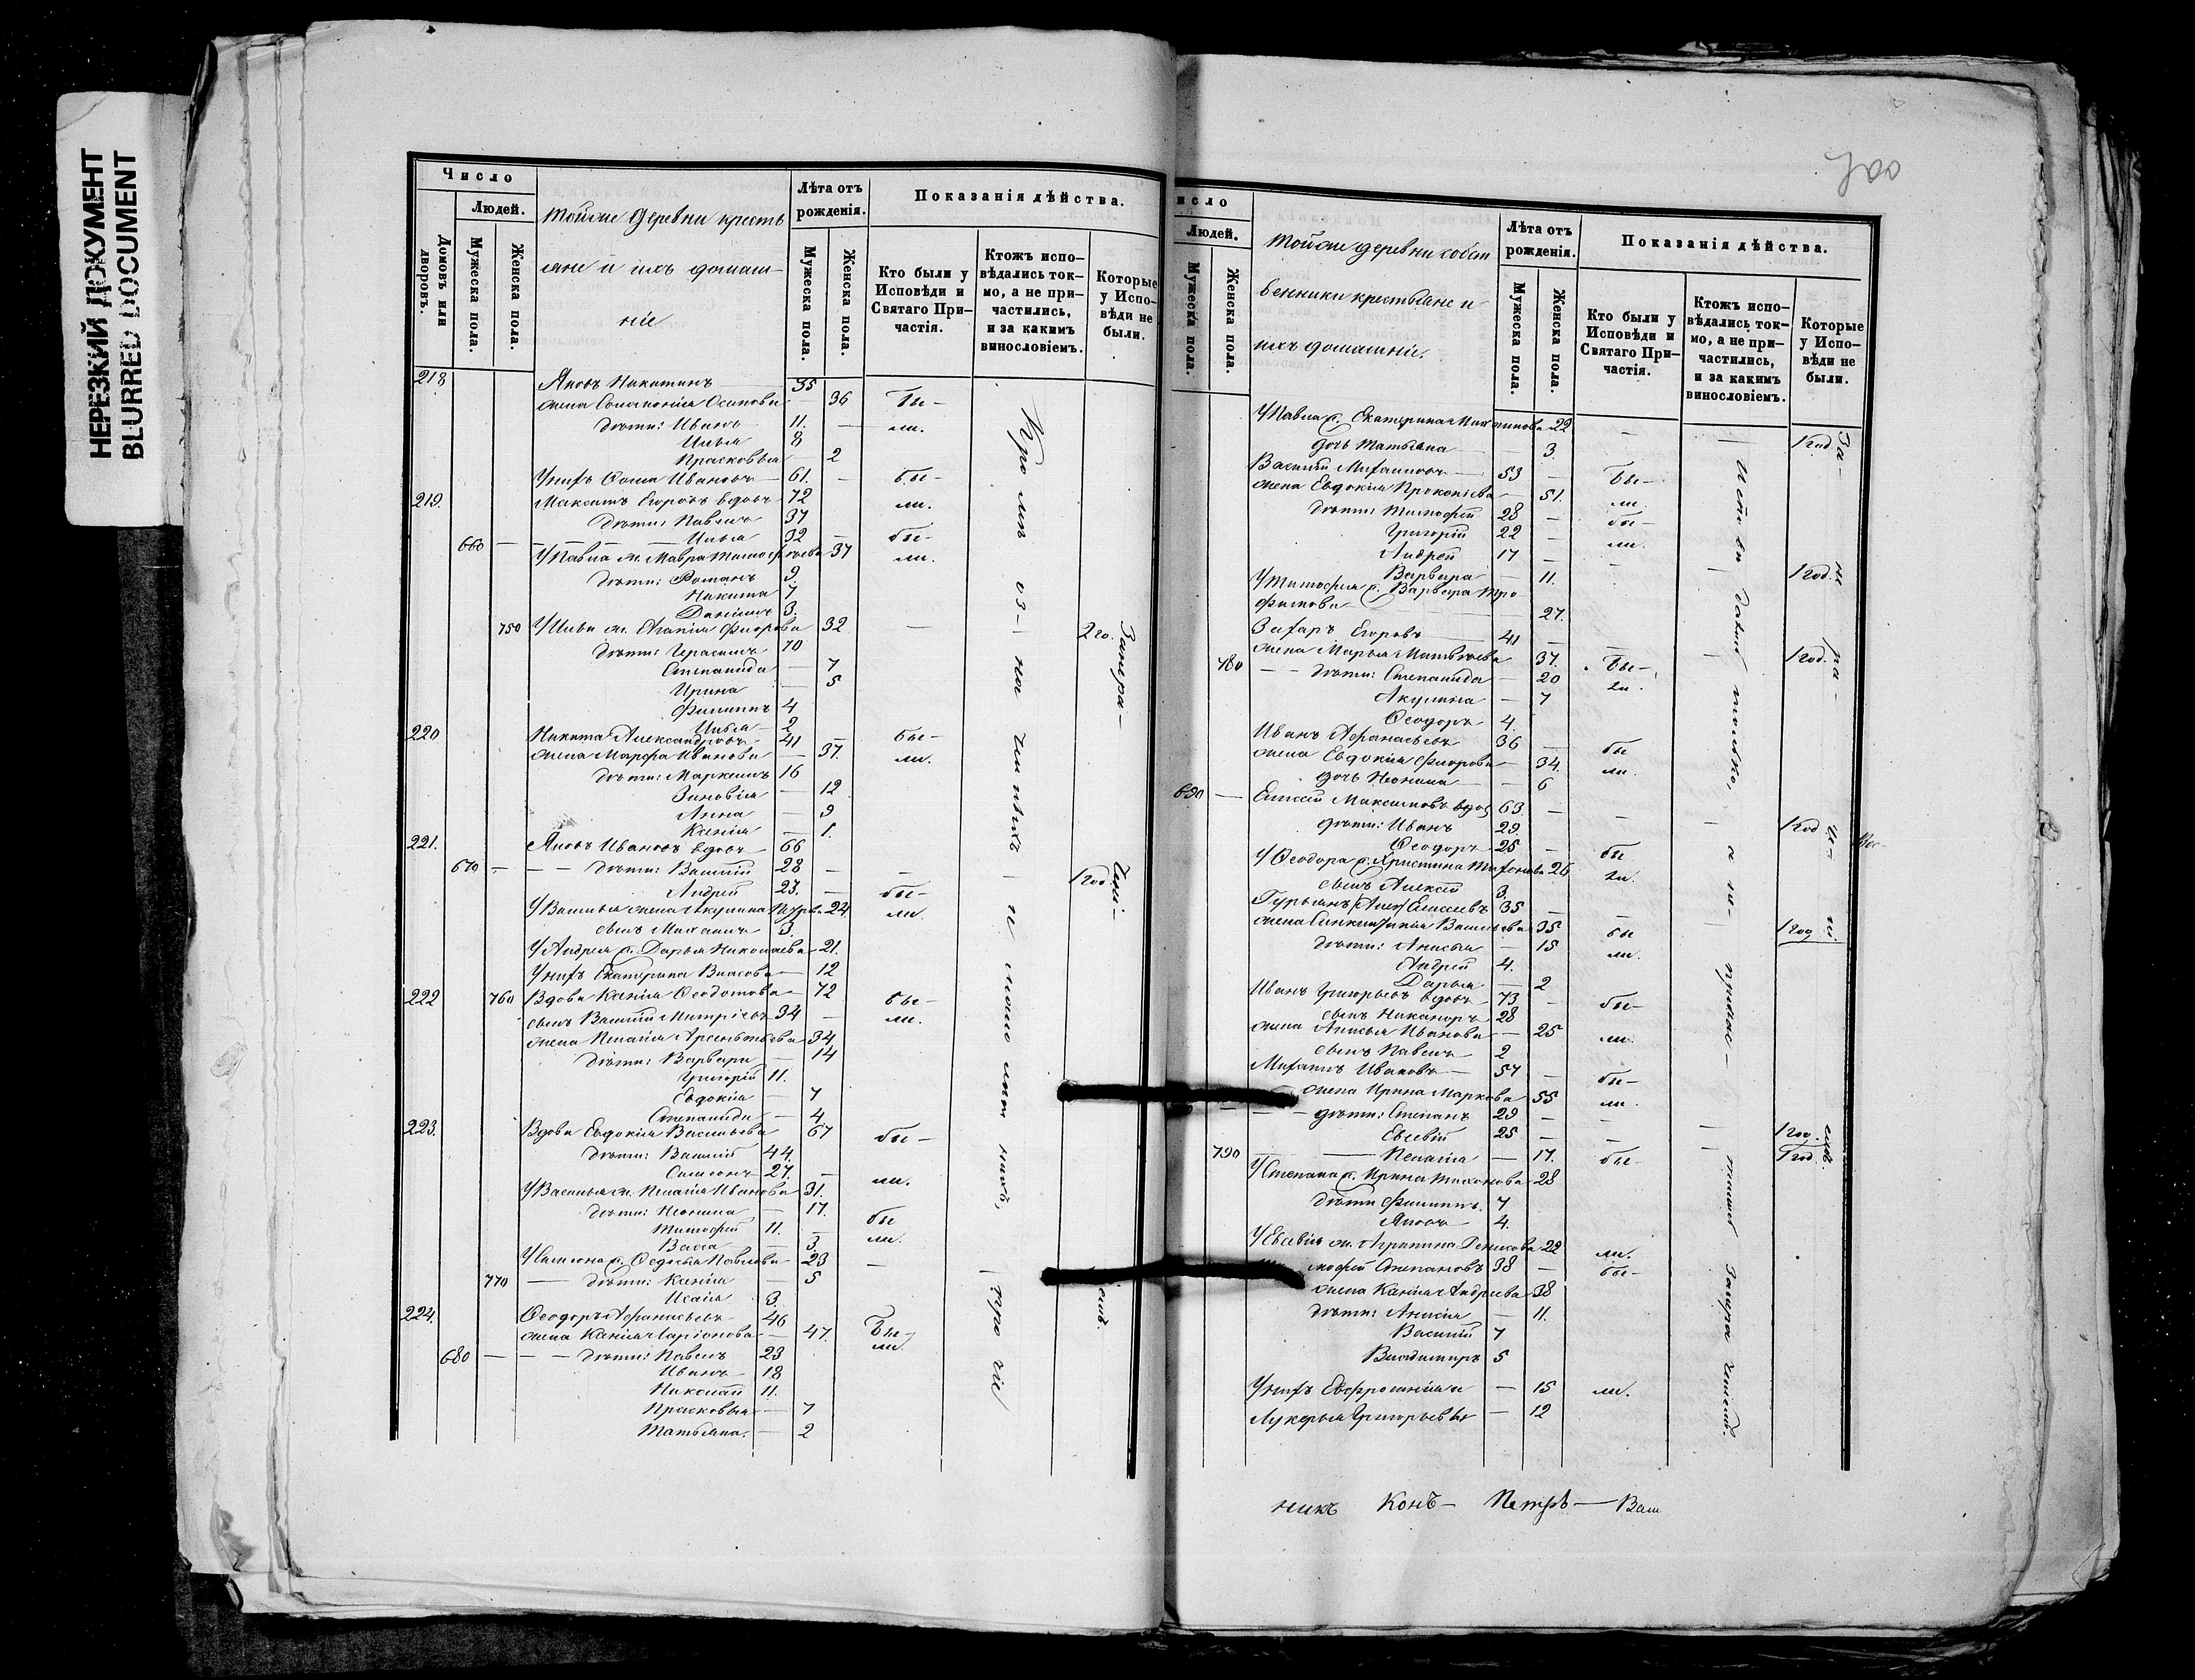 НЕРЕЗКИЙ ДОКУМЕНТ
BLURRED DOCUMENT
Число
Людей.
Домовъ или дворовъ.
Мужеска пола.
Женска пола.
тойже деревни кресть
яне и ихъ домаш-
ніе
Лѣта отъ рожденія.
Мужеска пола.
Женска пола.
Показанія дѣйства.
Кто были у Исповѣди и Святаго При-частія.
Ктожъ испо-вѣдались ток-мо, а не при-частились, и за какимъ винословіемъ.
Которые у Испо-вѣди не были.
218 Яковъ Никитинъ 35
жена Соломонія Осипова 36 бы-
дѣти: Иванъ 11. ли.
Илья 8
Прасковья 2
У нихъ Ѳома Ивановъ 61. бы-
219. Максимъ Егоровъ вдовъ 72 ли.
Дѣти: Павелъ 37
660 Илья 32 бы-
У Павла ж. Мавра Тимофѣева 37 ли.
дѣти: Романъ 9.
Никита 7
Даніилъ 3.
750 У Ильи ж. Агапія Флорова 32 2 го.
дѣти: Герасимъ 10
Степанида 7
Ирина 5
Филиппъ 4
Илья 2
220 Никита Александровъ 41 бы-
жена Марфа Иванова 37. ли.
дѣти: Маркелъ 16
Зиновія 12
Анна 9
Ксенія 1.
221. Яковъ Ивановъ вдовъ 66
670 дѣти: Василій 28 1 год.
Андрей 23. бы-
У Василья жена Акулина Петрова 24 ли.
сынъ Михаилъ 3.
У Андрея ж. Дарья Николаева 21.
У нихъ Екатерина Власова 12
222 760 Вдова Ксенія Ѳеодотова 72 бы-
сынъ Василій Митріевъ 34 ли.
жена Пелагія Арсентьева 34
дѣти: Варвара 14
Григорій 11.
Евдокія 7
Степанида 4
223. Вдова Евдокія Васильева 67 бы-
дѣти: Василій 44.
Самсонъ 27. ли.
У Василья ж. Пелагія Иванова 31.
дѣти: Неонила 17.
Тимофей 11. бы
Васса 3. ли.
У Самсона ж. Ѳедосья Павлова 23
770 дѣти: Ксенія 5
Исаія 3.
224. Ѳеодоръ Афанасьевъ 46
жена Ксенія Ларіонова 47. бы-
680 дѣти: Павелъ 23 ли
Иванъ 18
Николай 11.
Прасковья 7
Татьяна. 2
Людей.
Мужеска пола.
Женска пола.
тойже деревни собст
венники крестьяне и
ихъ домашніе.
Лѣта отъ рожденія.
Мужеска пола.
Женска пола.
Показанія дѣйства.
Кто были у Исповѣди и Святаго При-частія.
Ктожъ испо-вѣдались ток-мо, а не при-частились, и за какимъ винословіемъ.
Которые у Испо-вѣди не были.
У Павла ж. Екатерина 22 1 год.
дочь Татьяна 3
Василій Михаиловъ 53 бы-
жена Евдокія Прокопіева 51. ли
дѣти: Тимофей 28 бы-
Григорій 22 ли.
Андрей 17
Варвара 11. 1 год.
У Тимофея ж. Варвара Тро
фимова 27.
Захаръ Егоровъ 41
жена Марья Матвѣева 37. 1 год.
780 дѣти: Степанида 20 бы-
Акулина 7 ли.
Ѳеодоръ 4.
Иванъ Афанасьевъ 36 бы
жена Евдокія Флорова 34. ли.
дочь Неонила 6
690 Елисей Максимовъ вдов 63.
дѣти: Иванъ 29. 1 год
Ѳеодоръ 25 бы
У Ѳеодора ж. Христина 26 ли.
сынъ Алексѣй 3.
Гурьянъ Елисеевъ 35
жена Синклитикія Васильева 35 бы 1 год
дѣти: Анисья 15 ли.
Андрей 4.
Дарья 2
Иванъ Григорьевъ вдовъ 73 бы-
сынъ Никаноръ 28
жена Анисья Иванова 25 ли.
сынъ Павелъ 2
Михаилъ Ивановъ 57 бы-
жена Ирина Маркова 55 ли.
дѣти: Степанъ 29
Евсевій 25 1 год.
790 Пелагія 17. бы- 1 год.
У Степана ж. Ирина Тихонова 28
дѣти Филиппъ. 7
Яковъ 4.
У Евсевія ж. Агрипина Денисова 22 ли.
мофей Степановъ 38 бы-
жена Ксенія Андреева 38
дѣти: Анисія 11.
Василій 7
Владимиръ 5
У нихъ Евфросинія и 15 ли.
Лукерья Григорьевы 12
никъ Конъ- Петръ- Васи